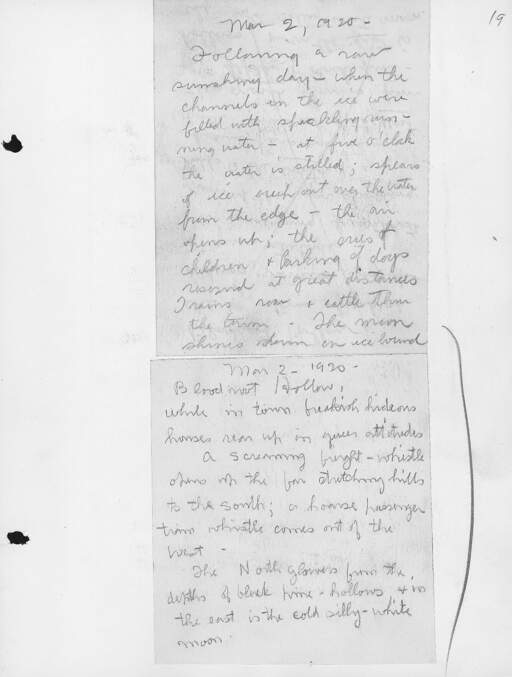 19
Mar 2, 1920 -
Following a rare
sunshiny day - when the
channels in the ice were
filled with sparkling run-
ning water - at five o'clock
the water is stilled; spears
of ice reach out over the water
from the edge - the air
opens up; the cries of
children & barking of dogs
resound at great distances
Trains roar & rattle thru
the town - The moon
shines down on ice bound
Mar 2 - 1920 -
Bloodroot Hollow,
while in town freakish hideous
houses rear up in queer attitudes
A screaming freight-whistle
opens up the far stretching hills
to the south; a hoarse passenger
train whistle comes out of the
West -
The North glowers from the
depths of black pine-hollows, & in
the east is the cold silly-white
moon.